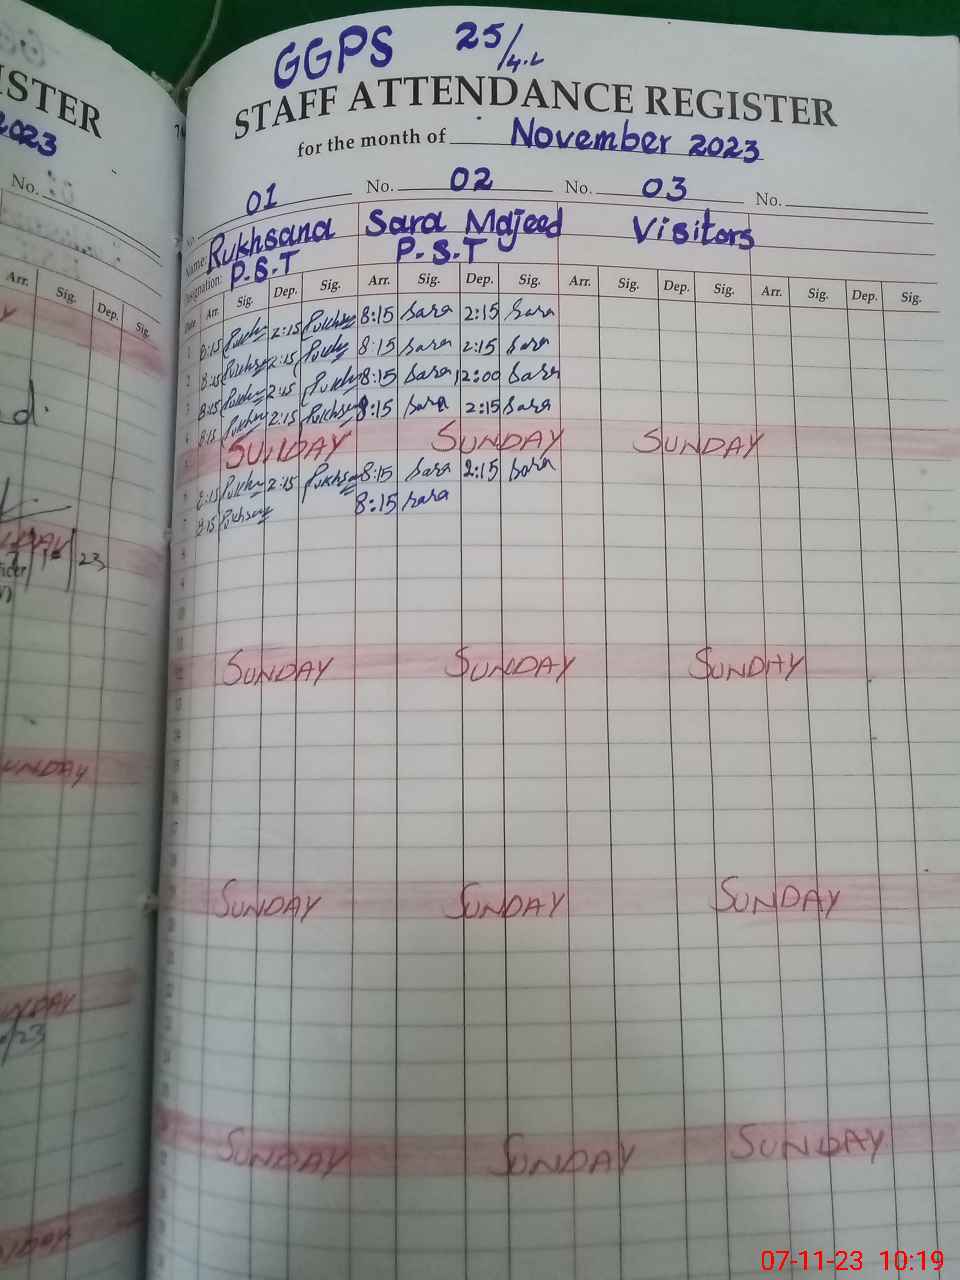 ISTER
2023
No.
Arr. Sig. Dep. Sig.
23
SUNDAY
SUNDAY
GGPS 25/4.L
STAFF ATTENDANCE REGISTER
for the month of November 2023
01 No. 02 No. 03 No.
Name: Rukhsana Sara Majeed Visitors
Designation: P.S.T P.S.T
Date Arr. Sig. Dep. Sig. Arr. Sig. Dep. Sig. Arr. Sig. Dep. Sig. Arr. Sig. Dep. Sig.
1 8:15 Rukhs 2:15 Rukhsana 8:15 Sara 2:15 Sara
2 8:15 Rukhsana 2:15 8:15 Sara 2:15 Sara
3 8:15 2:15 8:15 Sara 12:00 Sara
4 8:15 2:15 Rukhsana 8:15 Sara 2:15 Sara
5 SUNDAY SUNDAY SUNDAY
6 8:15 2:15 Rukhsana 8:15 Sara 2:15 Sara
7 8:15 Rukhsana 8:15 Sara
8
9
10
11
12 SUNDAY SUNDAY SUNDAY
13
14
15
16
17
SUNDAY SUNDAY SUNDAY
SUNDAY SUNDAY SUNDAY
07-11-23 10:19